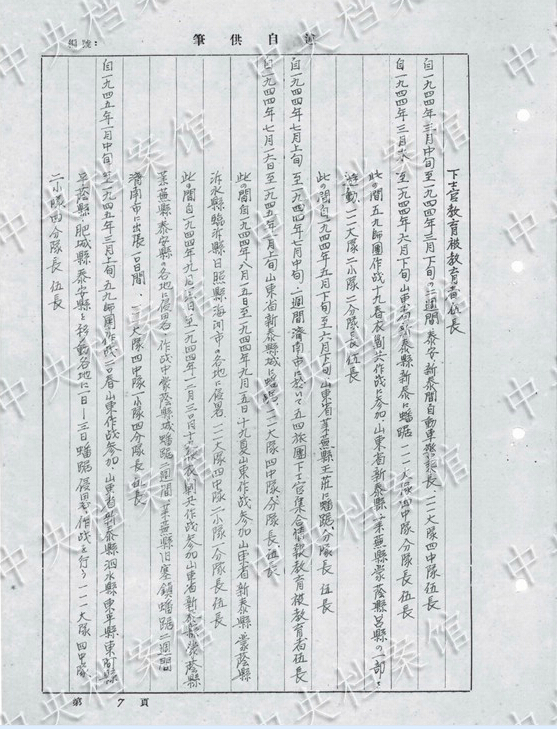 編號:
自白供筆
下士官教育被教育者伍長
自一九四四年三月中旬至一九四四年三月下旬の二週間泰安、新泰間自動車 一一一大隊四中隊伍長
自一九四四年三月末至一九四四年六月下旬山東省新泰縣新泰に蟠踞 一一一大隊四中隊分隊長伍長
此の間五九師團作戦十九春衣嶺共作戦に参加山東省新泰縣萊蕪縣蒙陰縣莒縣の一部を
遊動 一一一大隊二小隊二分隊長伍長
此の間自一九四四年五月下旬至六月下旬山東省萊蕪縣王莊に蟠踞、分隊長 伍長
自一九四四年七月上旬至一九四四年七月中旬二週間濟南市に於いて五四旅團下士官集合情報教育被教育者伍長
自一九四四年七月一六日至一九四五年一月上旬山東省新泰縣城に蟠踞 一一一大隊四中隊分隊長伍長
此の間自一九四四年八月五日至一九四四年九月五日十九夏山東作戦参加山東省新泰縣蒙陰縣
沂水縣臨沂縣日照縣海河市の各地に侵畧、一一一大隊四中隊二小隊 分隊長 伍長
此の間自一九四四年九月 日至一九四四年一二月三〇日 作戦参加山東省新泰縣蒙陰縣
萊蕪縣泰安縣の各地に侵畧、作戦中蒙陰縣城蟠踞二週間萊蕪縣旧寨鎮蟠踞二週間
濟南市出張一〇日間、一一一大隊四中隊一小隊四分隊長伍長
自一九四五年一月中旬至一九四五年三月上旬五九師團作戦二〇春山東作戦参加 山東省新泰縣泗水縣東平縣東阿縣
平陰縣肥城縣泰安縣を移動各地に一日ー三日蟠踞侵畧、作戦を行う 一一一大隊四中隊
二小隊四分隊長 伍長
第 7 頁
中央档案馆